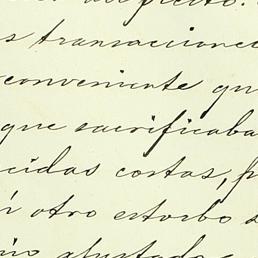 del pleito.
s transaccione
conveniente qu
que sacrificaba
cidas costas, p
n otro estorbo s
ajustado